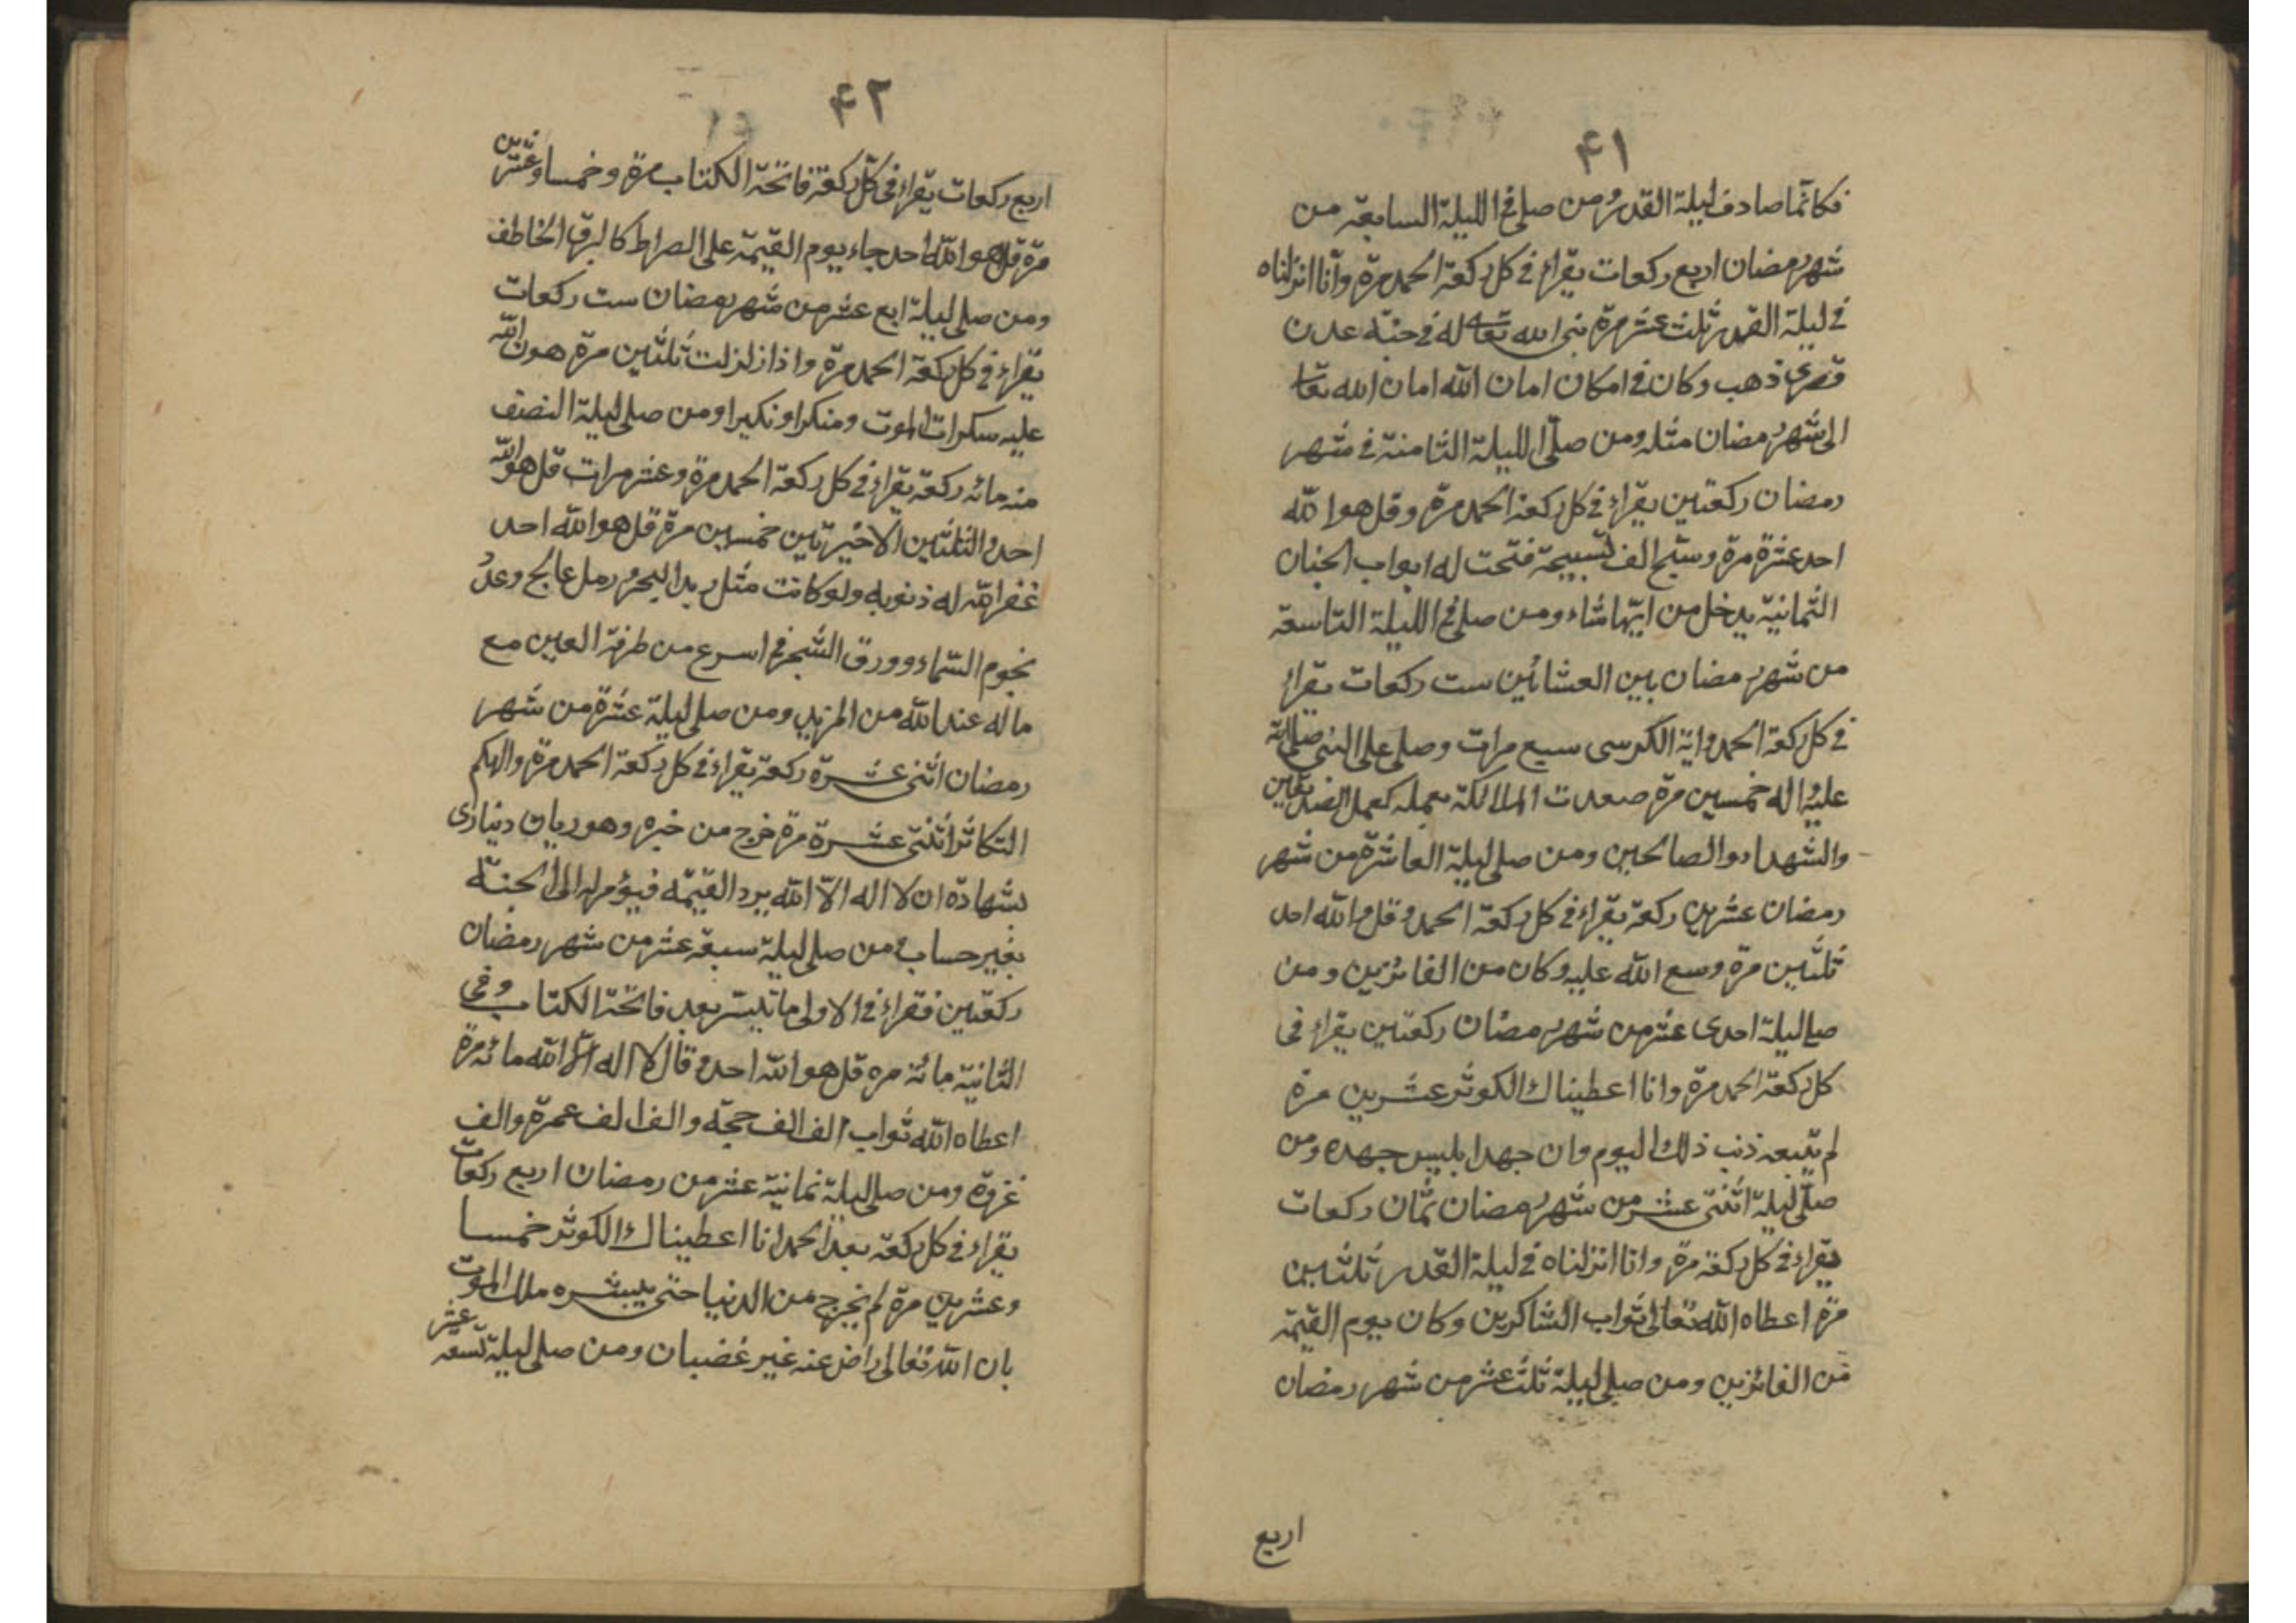 ۴۱
فكانما صادف ليلة القدر ومن صلى في الليلة السابعة من
شهر رمضان اربع ركعات يقراء في كل ركعة الحمد مرة وانا انزلناه
في ليلة القدر ثلث عشر مرة بنى الله تعالى له في جنة عدن
قصرى ذهب وكان في امكان امان الله امان الله تعا
الى شهر رمضان مثله ومن صلى الليلة الثامنة في شهر
رمضان ركعتين يقراء في كل ركعة الحمد مرة وقل هو الله
احد عشرة مرة وسبح الف تسبيحة فتحت له ابواب الجنان
الثمانية يدخل من ايها شاء ومن صلى في الليلة التاسعة
من شهر رمضان بين العشائين ست ركعات يقراء
في كل ركعة الحمد واية الكرسى سبع مرات وصلى على النبي صلى الله
عليه واله خمسين مرة صعدت الملائكة بعمله كعمل الصديقين
والشهداء والصالحين ومن صلى ليلة العاشرة من شهر
رمضان عشرين ركعة يقراء في كل ركعة الحمد وقل هو الله احد
ثلثين مرة وسع الله عليه وكان من الفائزين ومن
صلى ليلة احدى عشر من شهر رمضان ركعتين يقراء في
كل ركعة الحمد مرة وانا اعطيناك الكوثر عشرين مرة
لم يتبعه ذنب ذلك اليوم وان جهد ابليس جهده ومن
صلى ليلة اثنتى عشر من شهر رمضان ثمان ركعات
يقراء في كل ركعة مرة وانا انزلناه في ليلة القدر ثلثين
مرة اعطاه الله تعالى ثواب الشاكرين وكان يوم القيمة
من الفائزين ومن صلى ليلة ثلث عشر من شهر رمضان
اربع
۴۲
اربع ركعات يقراء في كل ركعة فاتحة الكتاب مرة وخمسا وعشرين
مرة قل هو الله احد جاء يوم القيمة على الصراط كالبرق الخاطف
ومن صلى ليلة اربع عشر من شهر رمضان ست ركعات
يقراء في كل ركعة الحمد مرة واذا زلزلت ثلثين مرة هون الله
عليه سكرات الموت ومنكرا ونكيرا ومن صلى ليلة النصف
منه مائه ركعة يقراء في كل ركعة الحمد مرة وعشر مرات قل هو الله
احد والثلثين الاخيرتين خمسين مرة قل هو الله احد
غفر الله له ذنوبه ولو كانت مثل زبد البحر ورمل عالج وعدد
نجوم السماء وورق الشجر في اسرع من طرفة العين مع
ماله عند الله من المزيد ومن صلى ليلة عشرة من شهر
رمضان اثنى عشرة ركعة يقراء في كل ركعة الحمد مرة والهكم
التكاثر اثنتى عشرة مرة خرج من خبره وهو ريان دنيارى
بشهادة ان لا اله الا الله يرد القيمه فيؤمر له الى الجنة
بغير حساب من صلى ليلة سبعة عشر من شهر رمضان
ركعتين فقراء في الاولى ما تيسر بعد فاتحة الكتاب وفى
الثانية مائة مره قل هو الله احد وقال لا اله الا الله مائة مرة
اعطاه الله ثواب الف الف حجه والف الف عمرة والف
غزوة ومن صلى ليلة ثمانية عشر من رمضان اربع ركعات
يقراء في كل ركعة بعد الحمد انا اعطيناك الكوثر خمسا
وعشرين مرة لم يخرج من الدنيا حتى يبشره ملك الموت
بان الله تعالى راض عنه غير غضبان ومن صلى ليلة تسعه عشر